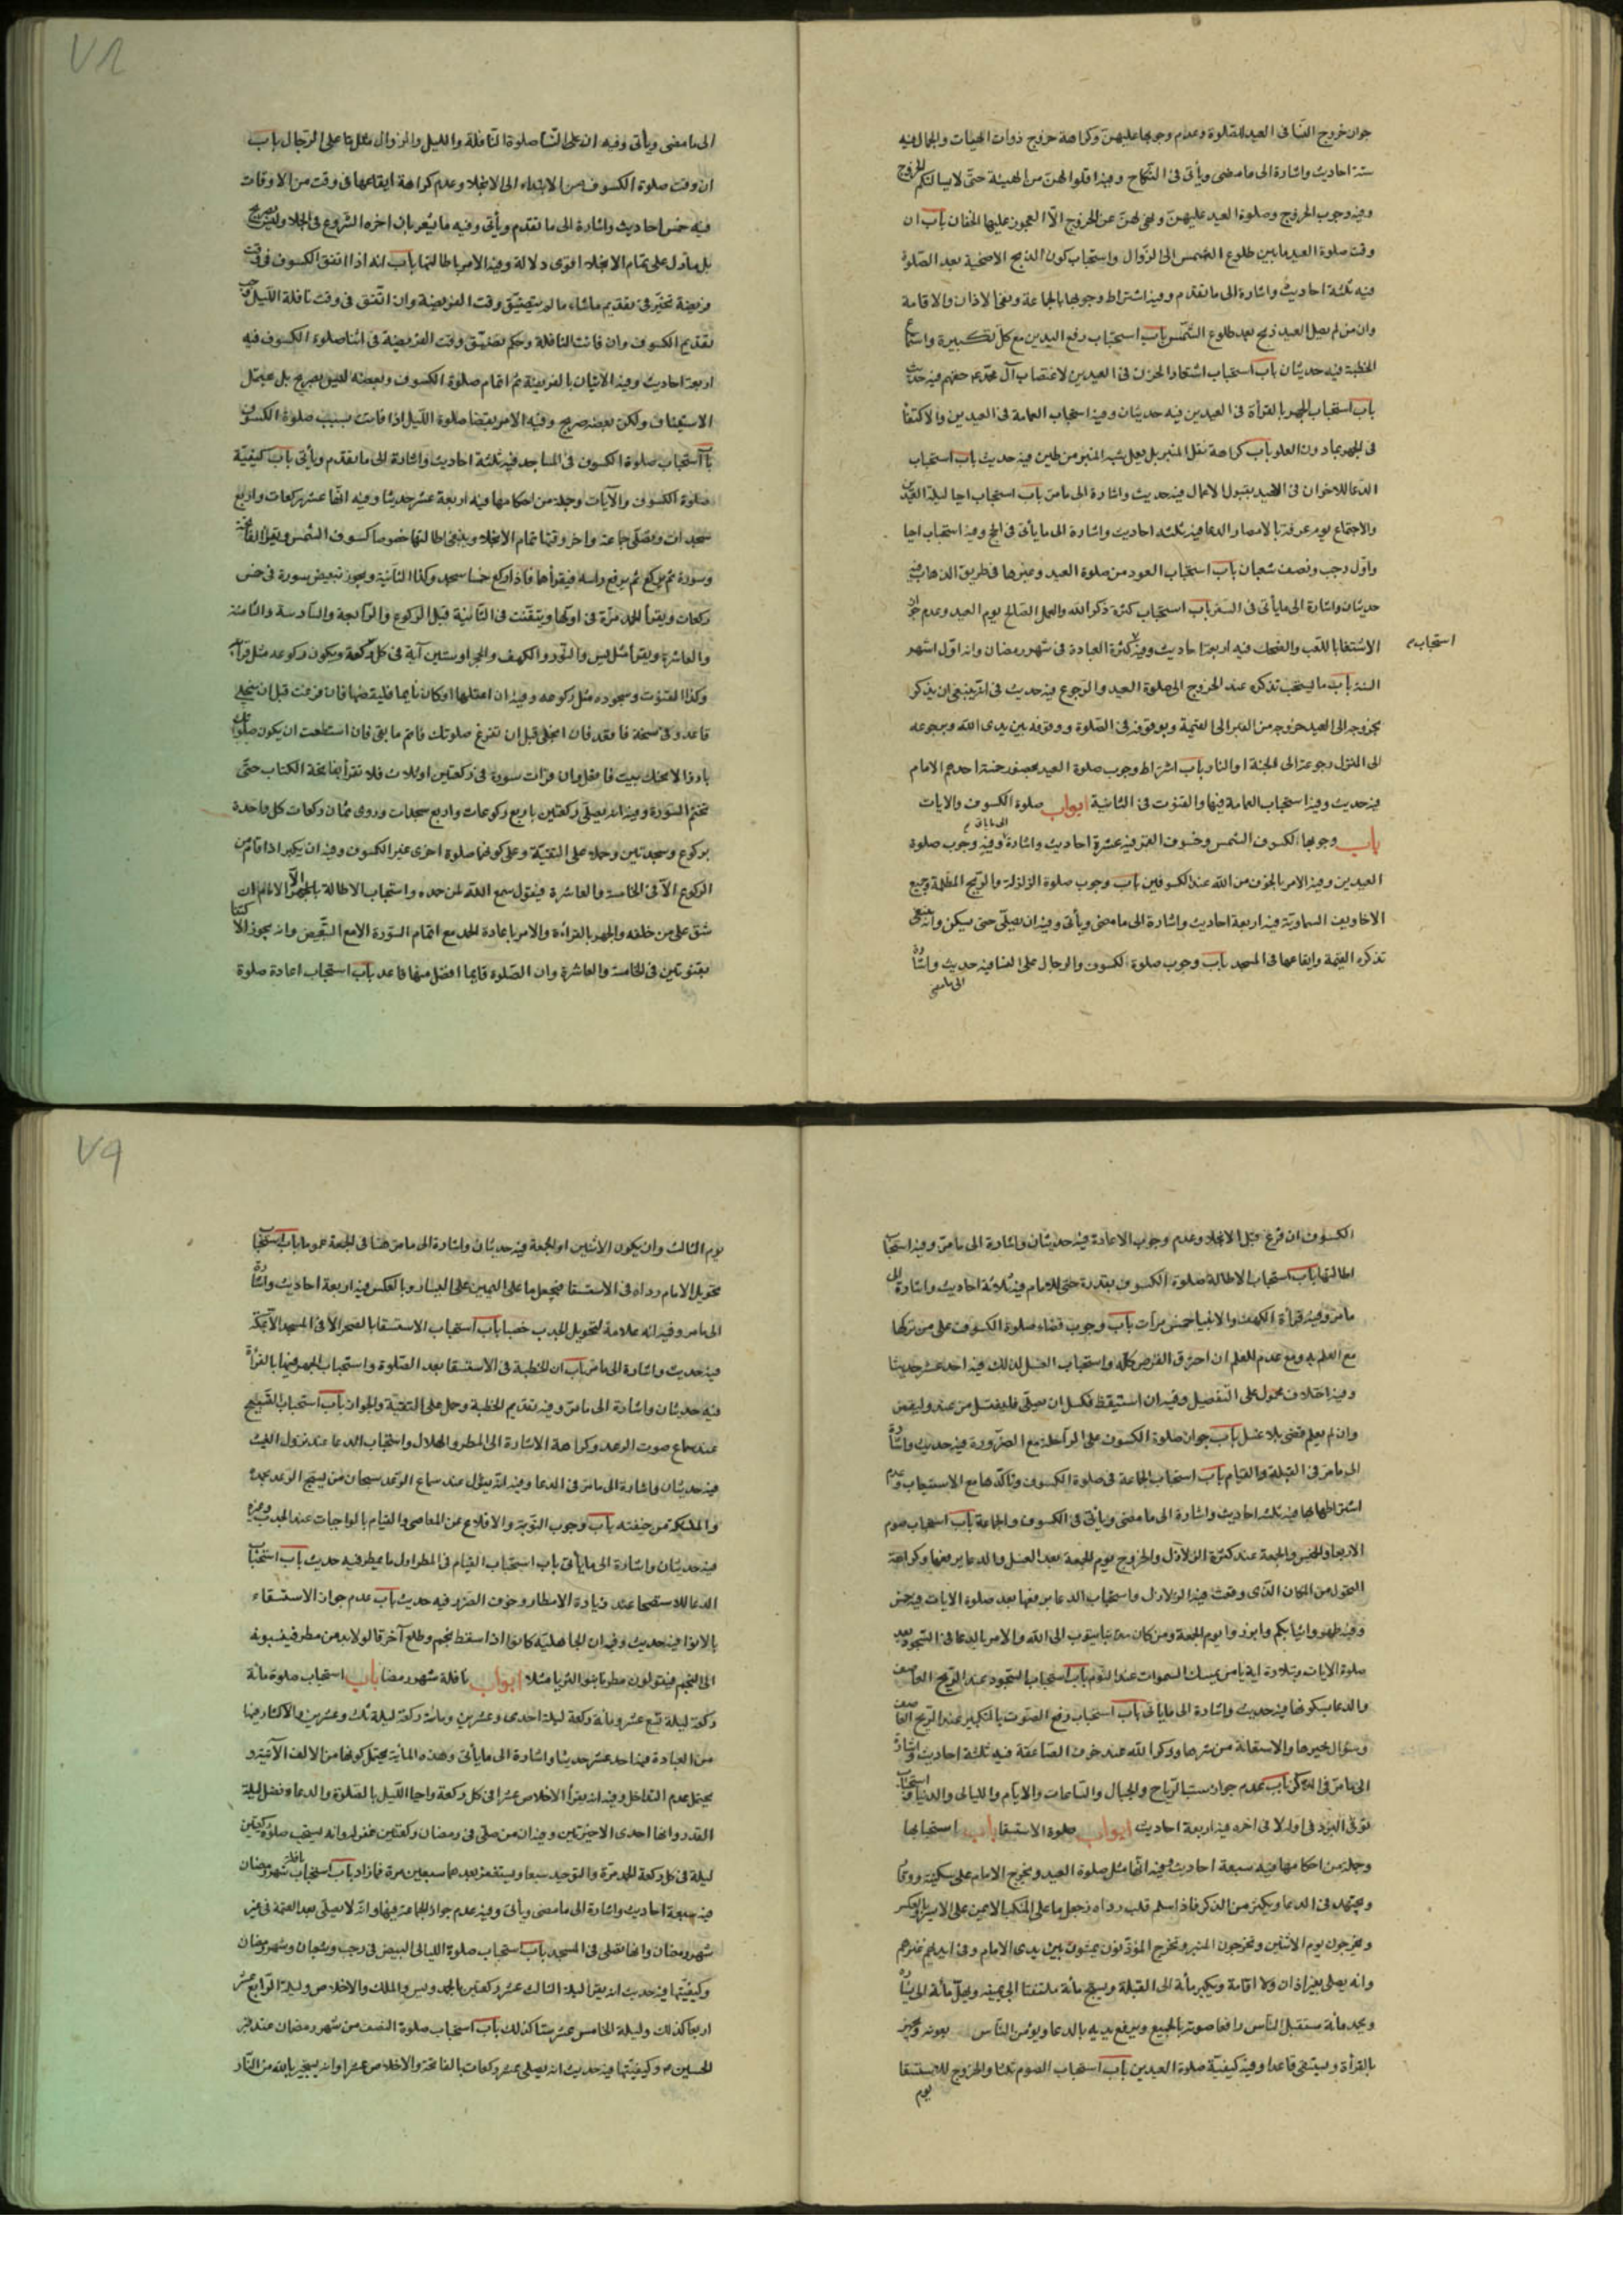 جواز خروج النسا فى العيد للصلوة وعدم وجوبها عليهن وكراهة خروج ذوات الهيئات والجمال فيه
ستة احاديث واشارة الى ما مضى ويأتى فى النكاح وفيه اقلوا لهن من الهيئة حتى لا يسالنكم الخروج
وفيه وجوب الخروج وصلوة العيد عليهن ونهى لهن عن الخروج الا العجوز عليها الخفان باب ان
وقت صلوة العيد ما بين طلوع الشمس الى الزوال واستحباب كون الذبح الاضحية بعد الصلوة
فيه ثلثة احاديث واشارة الى ما تقدم وفيه اشتراط وجوبها بالجماعة ونفى الاذان والاقامة
وان من لم يصل العيد ذبح بعد طلوع الشمس باب استحباب رفع اليدين مع كل تكبيرة واستماع
الخطبة فيه حديثان باب استحباب اشتعار الحزن فى العيدين لاغتصاب آل محمد ع حقهم فيه حديث
باب استحباب الجهر بالقرأة فى العيدين فيه حديثان وفيه استحباب العمامة فى العيدين والاكتفأ
فى الجهر بما دون العلو باب كراهة نقل المنبر بل يعمل شبه المنبر من طين فيه حديث باب استحباب
الدعا للاخوان فى العيد بقبول الاعمال فيه حديث واشارة الى ما مر باب استحباب احيا ليلة العيدين
والاجتماع يوم عرفة بالامصار والدعا فيه ثلثة احاديث واشارة الى ما يأتى فى الحج وفيه استحباب احيا
واول رجب ونصف شعبان باب استحباب العود من صلوة العيد وغيرها فى طريق الذهاب فيه
حديثان واشارة الى ما يأتى فى السفر باب استحباب كثرة ذكر الله والعمل الصالح يوم العيد وعدم جواز
الاشتغا باللعب والضحك فيه اربعة احاديث وفيه كثرة العبادة فى شهر رمضان وانه اول اشهر
استحباب م
السنة باب ما يستحب تذكره عند الخروج الى صلوة العيد والرجوع فيه حديث فى انه ينبغى ان يذكر
بخروجه الى العيد خروجه من القبر الى القيمة وبوقوفه فى الصلوة ووقوفه بين يدى الله وبرجوعه
الى المنزل رجوعه الى الجنة او النار باب اشتراط وجوب صلوة العيد بحضور خمسة احدهم الامام
فيه حديث وفيه استحباب العمامة فيها والقنوت فى الثانية ابواب صلوة الكسوف والايات
باب وجوبها لكسوف الشمس وخسوف القمر فيه عشرة احاديث واشارة الى ما ياتى م وفيه وجوب صلوة
العيدين وفيه الامر بالخوف من الله عند الكسوفين باب وجوب صلوة الزلزلة والريح المظلمة وجميع
الاخاويف السماوية فيه اربعة احاديث واشارة الى ما مضى ويأتى وفيه ان يصلى حتى يسكن وانه ينبغى
تذكره القيمة وايقاعها فى المسجد باب وجوب صلوة الكسوف والرجال على النسا فيه حديث واشارة
الى ما مضى
٧٨
الى ما مضى ويأتى وفيه ان على النسا صلوة النافلة والليل والزوال مثل ما على الرجال باب
ان وقت صلوة الكسوف من الابتداء الى الانجلا وعدم كراهة ايقاعها فى وقت من الاوقات
فيه خمس احاديث واشارة الى ما تقدم ويأتى وفيه ما يشعر بان اخره الشروع فى الانجلا وليس بصريح
بل ما دل على تمام الانجلا اقوى دلالة وفيه الامر باطالتها باب انه اذا اتفق الكسوف فى وقت
فريضة تخير فى تقديم ماشاء مالم يتضيق وقت الفريضة وان اتفق فى وقت نافلة الليل وجب
تقديم الكسوف وان فاتت النافلة وحكم تضيق وقت الفريضة فى اثنا صلوة الكسوف فيه
اربعة احاديث وفيه الاتيان بالفريضة ثم اتمام صلوة الكسوف وبعضه ليس بصريح بل يحتمل
الاستيناف ولكن بعضه صريح وفيه الامر بقضا صلوة الليل اذا فاتت بسبب صلوة الكسوف
باب استحباب صلوة الكسوف فى المساجد فيه ثلثة احاديث واشارة الى ما تقدم ويأتى باب كيفية
صلوة الكسوف والآيات وجملة من احكامها فيه اربعة عشر حديثا وفيه انها عشر ركعات واربع
سجدات وتصلى جماعة واخر وقتها تمام الانجلا وينبغى اطالتها خصوصا كسوف الشمس ويقرأ الفاتحة
وسورة ثم يركع ثم يرفع راسه فيقرأها فاذا ركع خمسا سجد وكذا الثانية ويجوز تبعيض سورة فى خمس
ركعات ويقرأ الحمد مرة فى اولها ويقنت فى الثانية قبل الركوع والرابعة والسادسة والثامنة
والعاشرة ويقرأ مثل يس والنور والكهف والحجر او ستين آية فى كل ركعة ويكون ركوعه مثل قرائته
وكذا القنوت وسجوده مثل ركوعه وفيه ان اغفلها او كان نايما فليقضها فان فرغت قبل ان ينجلى
قاعد وفى نسخة فاقعد فان انجلى قبل ان تفرغ صلوتك فاتم ما بقى فان استطعت ان يكون صلوتك
بارزا لا يجنك بيت فافعل وان قرات سورة فى ركعتين او ثلاث فلا تقرأ بفاتحة الكتاب حتى
تختم السورة وفيه انه يصلى ركعتين باربع ركوعات واربع سجدات وروى ثمان ركعات كل واحدة
بركوع وسجدتين وحمله على التقية وعلى كونها صلوة اخرى غير الكسوف وفيه ان يكبر اذا قام من
الركوع الا فى الخامسة والعاشرة فيقول سمع الله لمن حمده واستحباب الاطالة بالجهر الا الامام ان
شق على من خلفه والجهر بالقراءة والامر باعادة الحمد مع اتمام السورة الامع التبعيض وانه يجوز الاكتفا
بقنوتين فى الخامسة والعاشرة وان الصلوة قايما افضل منها قاعد باب استحباب اعادة صلوة
الكسوف ان فرغ قبل الانجلا وعدم وجوب الاعادة فيه حديثان واشارة الى ما مر وفيه استحباب
اطالتها باب استحباب الاطالة صلوة الكسوف بقدره حتى للامام فيه ثلاثة احاديث واشارة الى
ما مر وفيه قرأة الكهف والانبيا خمس مرات باب وجوب قضاء صلوة الكسوف على من تركها
مع العلم به ومع عدم العلم ان احترق القرص كله واستحباب الغسل لذلك فيه احد عشر حديثا
وفيه اختلاف محمول على التفصيل وفيه ان استيقظ فكسل ان يصلى فليغتسل من غد وليقض
وان لم يعلم قضى بلا غسل باب جواز صلوة الكسوف على الراحلة مع الضرورة فيه حديث واشارة
الى ما مر فى القبلة والقيام باب استحباب الجماعة فى صلوة الكسوف وتاكدها مع الاستيعاب وعدم
اشتراطها بها فيه ثلثه احاديث واشارة الى ما مضى ويأتى فى الكسوف والجماعة باب استحباب صوم
الاربعا والخميس والجمعة عند كثرة الزلازل والخروج يوم الجمعة بعد الغسل والدعا برفعها وكراهة
التحول من المكان الذى وقعت فيه الزلازل واستحباب الدعا برفعها بعد صلوة الايات فيه خمس
وفيه طهروا ثيابكم وابرزوا يوم الجمعة ومن كان مذنبا يتوب الى الله والامر بالدعا فى السجود بعد
صلوة الايات وتلاوة اية يا من يمسك السموات عند النوم باب استحباب السجود عند الريح العاصف
والدعا بسكونها فيه حديث واشارة الى ما يأتى باب استحباب رفع الصوت بالتكبير عند الريح العاصف
وسؤال خيرها والاستعاذة من شرها وذكر الله عند خوف الصاعقة فيه ثلثة احاديث واشارة
الى ما مر فى الذكر باب عدم جواز سب الرياح والجبال والساعات والايام والليالى والدنيا واستحباب
توقى البرد فى اوله لا فى اخره فيه اربعة احاديث ابواب صلوة الاستسقا باب استحبابها
وجملة من احكامها فيه سبعة احاديث وفيه انها مثل صلوة العيد ويخرج الامام على سكينة ووقار
ويجتهد فى الدعا ويكثر من الذكر فاذا سلم قلب رداه وجعل ما على المنكب الايمن على الايسر وبالعكس
ويخرجون يوم الاثنين ويخرجون المنبر ويخرج المؤذنون يمشون بين يدى الامام وفى ايديهم عنزهم
وانه يصلى بغير اذان ولا اقامة ويكبر مأة الى القبلة ويسبح مأة ملتفتا الى يمينه ويهلل مأة الى يساره
ويحمد مأة مستقبل الناس رافعا صوته بالجميع ويرفع يديه بالدعا ويؤمن الناس ويجهر
بالقرأة ويستسقى قاعدا وفيه كيفية صلوة العيدين باب استحباب الصوم ثلثا والخروج للاستسقا
يوم
٧٩
يوم الثالث وان يكون الاثنين او الجمعة فيه حديثان واشارة الى ما مر هنا فى الجمعة عموما باب استحباب
تحويل الامام رداه فى الاستسقا فيجعل ما على اليمين على اليسار وبالعكس فيه اربعة احاديث واشارة
الى ما مر وفيه انه علامة لتحويل الجدب خصبا باب استحباب الاستسقا بالصحرا لا فى المسجد الا بمكة
فيه حديث واشارة الى ما مر باب ان الخطبة فى الاستسقا بعد الصلوة واستحباب الجهر فيها بالقرأة
فيه حديثان واشارة الى ما مر وفيه تقديم الخطبة وحمل على التقية والجواز باب استحباب التسبيح
عند سماع صوت الرعد وكراهة الاشارة الى المطر والهلال واستحباب الدعا عند نزول الغيث
فيه حديثان واشارة الى ما مر فى الدعا وفيه انه يقول عند سماع الرعد سبحان من يسبح الرعد بحمده
والملئكة من خيفته باب وجوب التوبة والاقلاع عن المعاصى والقيام بالواجبات عند الجدب وغيره
فيه حديثان واشارة الى ما يأتى باب استحباب القيام فى المطر اول ما يمطر فيه حديث باب استحباب
الدعا للاستصحا عند زيادة الامطار وخوف الضرر فيه حديث باب عدم جواز الاستسقاء
بالانوا فيه حديث وفيه ان الجاهلية كانوا اذا سقط نجم وطلع آخر قالوا لابد من مطر فينسبونه
الى النجم فيقولون مطرنا بنو الثريا مثلا ابواب نافلة شهر رمضا باب استحباب صلوة مأة
ركعة ليلة تسع عشر ومأة ركعة ليلة احدى وعشرين ومأة ركعة ليلة ثلث وعشرين والاكثار فيها
من العبادة فيها احد عشر حديثا واشارة الى ما يأتى وهذه المأية يحتمل كونها من الالف الآتية و
يحتمل عدم التداخل وفيه انه يقرأ الاخلاص عشرا فى كل ركعة واحيا الليل بالصلوة والدعا وفضل ليلة
القدر وانها احدى الاخيرتين وفيه ان من صلى فى رمضان ركعتين غفر له وانه يستحب صلوة ركعتين
ليلة فى كل ركعة الحمد مرة والتوحيد سبعا ويستغفر بعدهما سبعين مرة فما زاد باب استحباب نافلة شهر رمضان
فيه سبعة احاديث واشارة الى ما مضى ويأتى وفيه عدم جواز الجماعة فيها وانه لا يصلى بعد العتمة فى غير
شهر رمضان وانها تصلى فى المسجد باب استحباب صلوة الليالى البيض فى رجب وشعبان وشهر رمضان
وكيفيتها فيه حديث انه يقرأ ليلة الثالث عشر ركعتين بالحمد ويس والملك والاخلاص وليلة الرابع عشر
اربعا كذلك وليلة الخامس عشر ستا كذلك باب استحباب صلوة النصف من شهر رمضان عند قبر
الحسين م وكيفيتها فيه حديث انه يصلى عشر ركعات بالفاتحة والاخلاص عشرا وانه يستجير بالله من النار